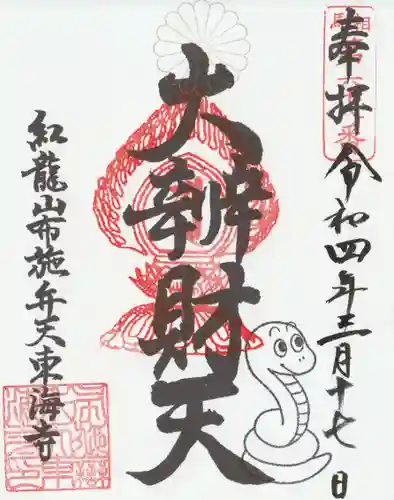 奉拝
令和四年三月十七日
大辨財天
紅龍山布施弁天東海寺